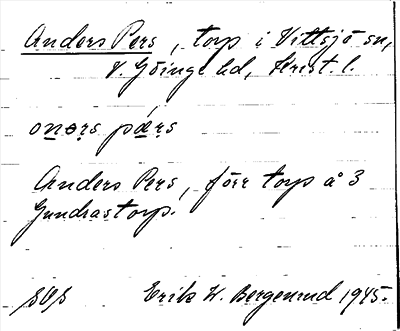 Anders Pers, torp i Vittsjö sn,
V. Göinge hd, Krist. l.
onərs pærs
Anders Pers, förr torp å 3
Gundrastorp.
Erik W. Bergenrud 1945.